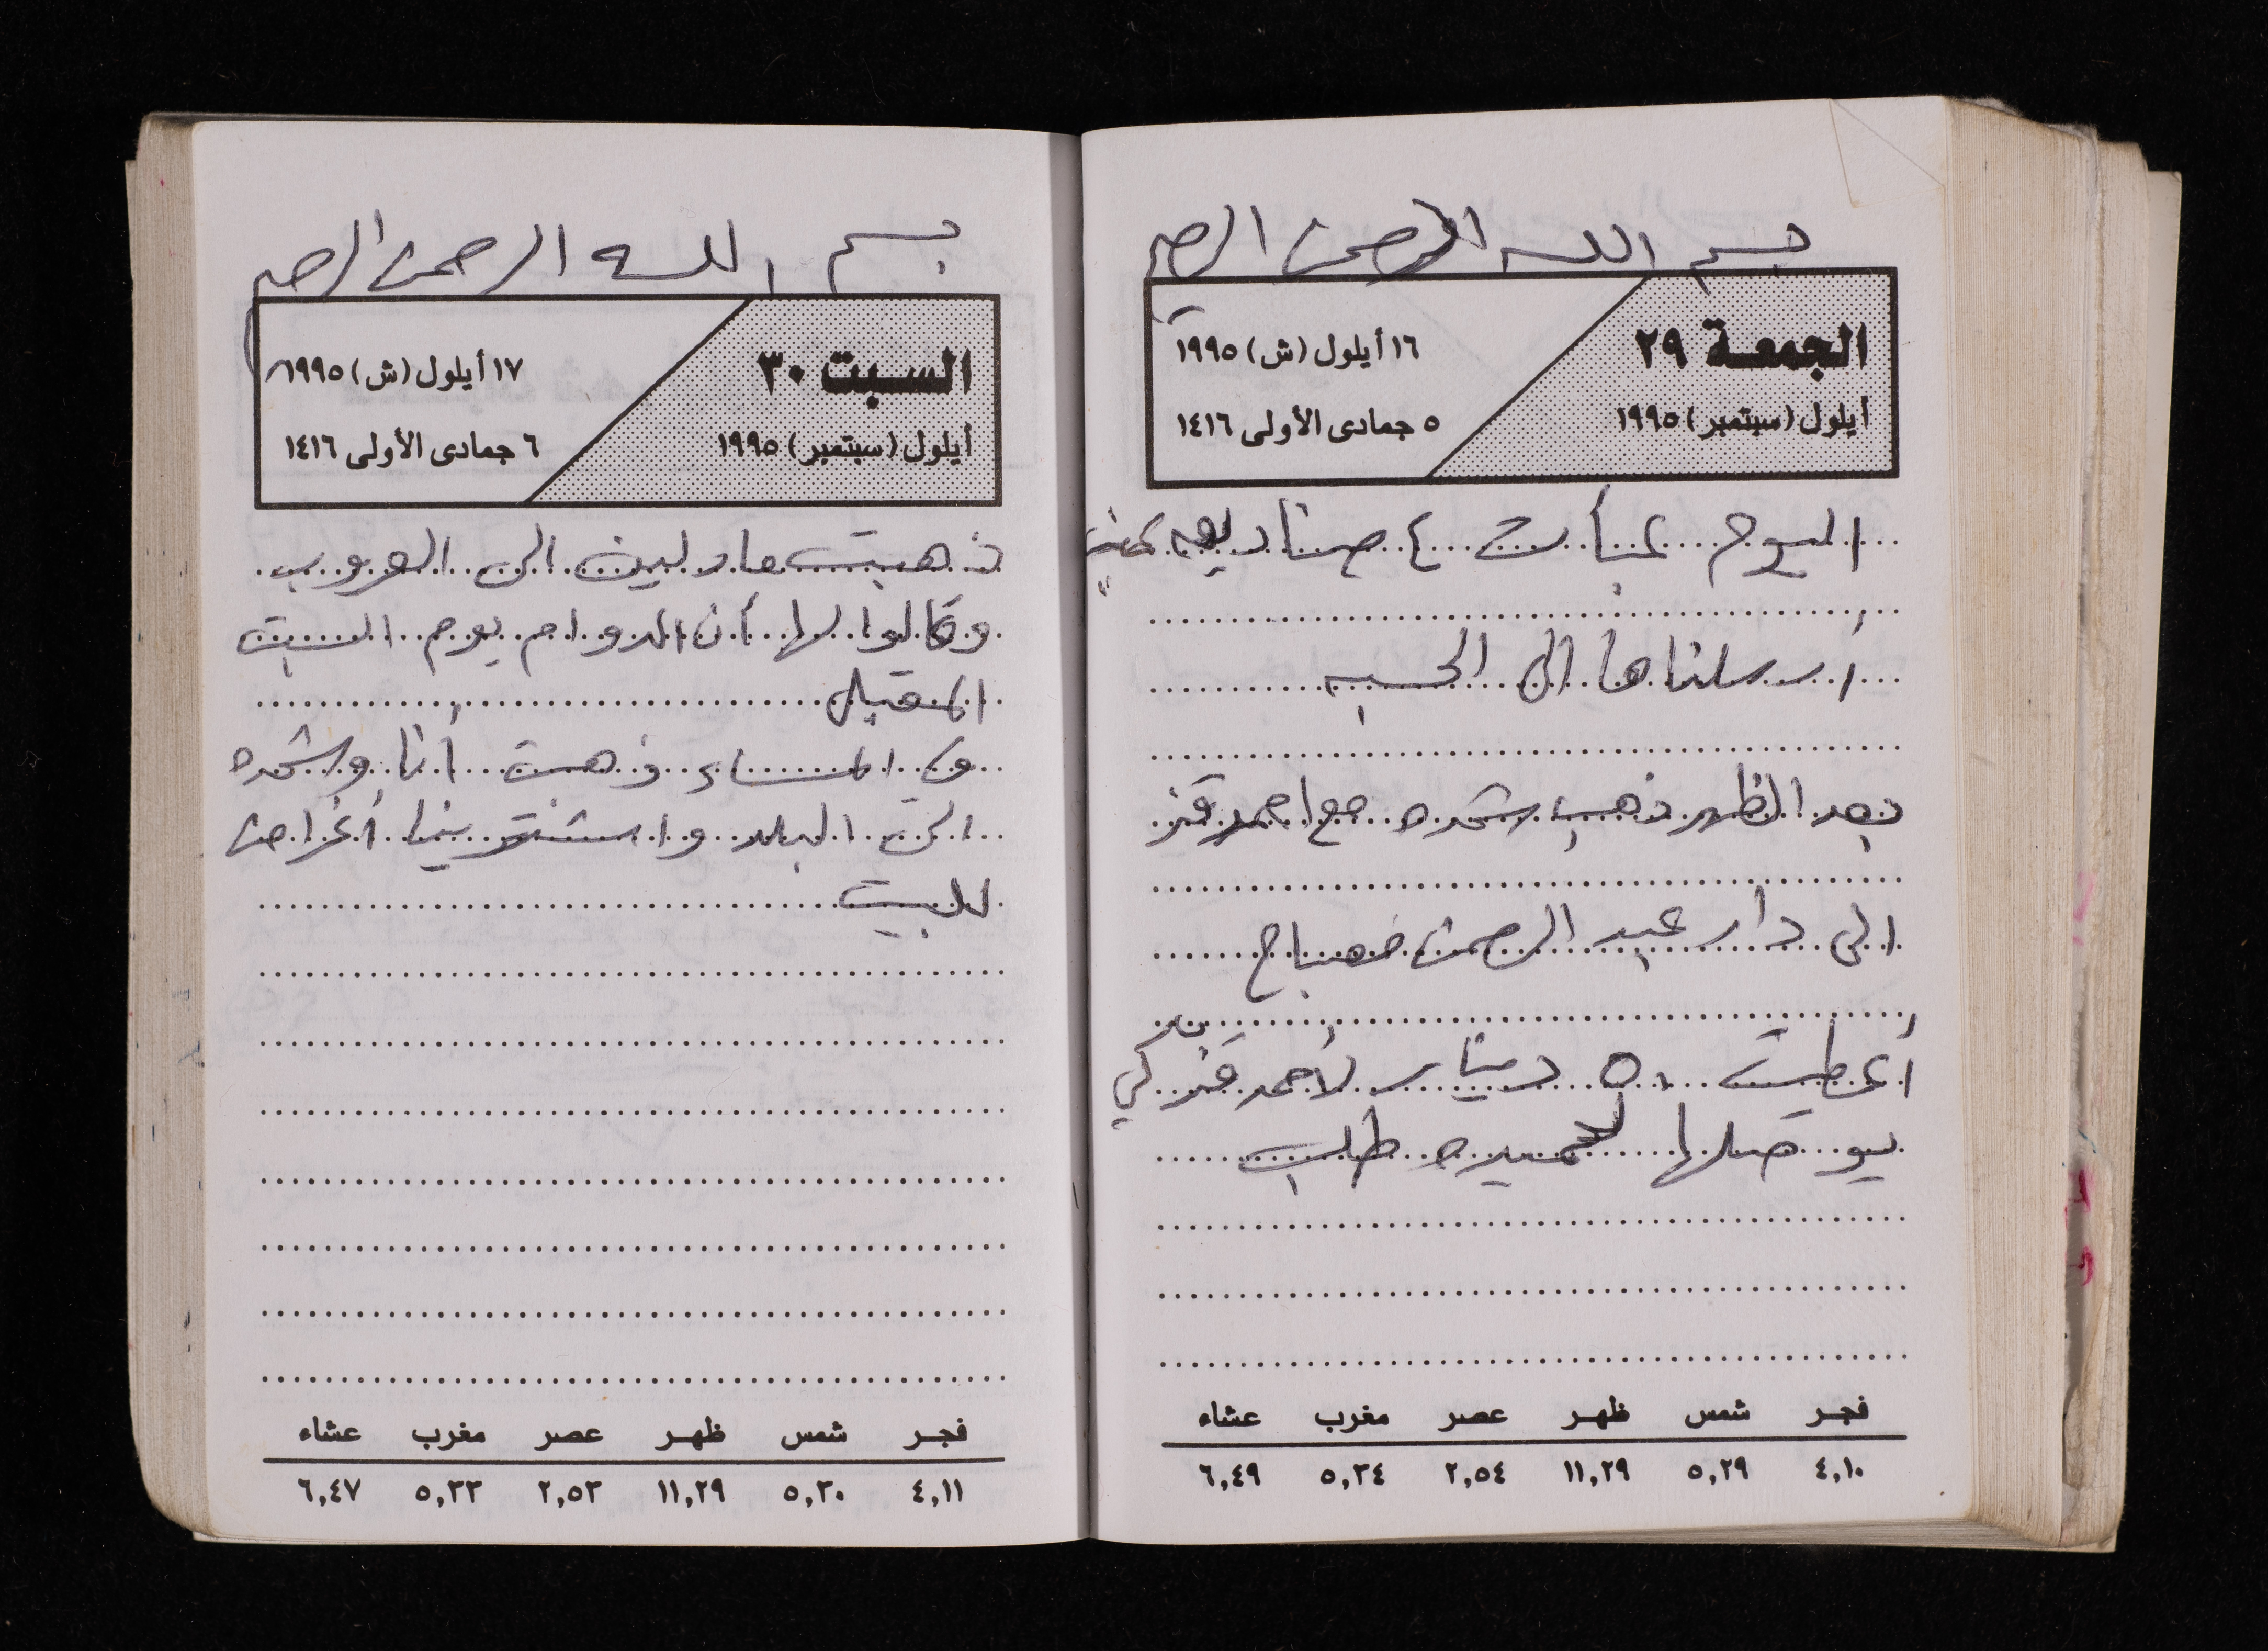 بسم الله الرحمن الرحيم
الجمعة ٢٩
أيلول (سبتمبر) ١٩٩٥
١٦ أيلول (ش) ١٩٩٥
٥ جمادى الأولى ١٤١٦
اليوم عبأت ٤ صناديق
أرسلناها الى الحسبه
بعد الظهر ذهب شحده مع احمد
الى دار عبد الرحمن مصباح
أعطيت ٥٠ دينار لأحمد كي
يوصلها لحميده طلب
فجر شمس ظهر عصر مغرب عشاء
٤,١٠ ٥,٢٩ ١١,٢٩ ٢,٥٤ ٥,٣٤ ٦,٤٩
بسم الله الرحمن الرحيم
السبت ٣٠
أيلول (سبتمبر) ١٩٩٥
١٧ أيلول (ش) ١٩٩٥
٦ جمادى الأولى ١٤١٦
ذهبت مادلين الى العروب
وقالوا لها أن الدوام يوم السبت
المقبل
وفي المساء ذهبت أنا وشحده
الى البلد واشترينا أغراض
للبيت
فجر شمس ظهر عصر مغرب عشاء
٤,١١ ٥,٣٠ ١١,٢٩ ٢,٥٣ ٥,٣٣ ٦,٤٧